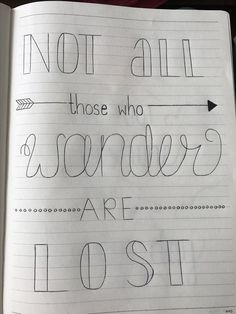 NOT all
those who
wander
ARE
LOST